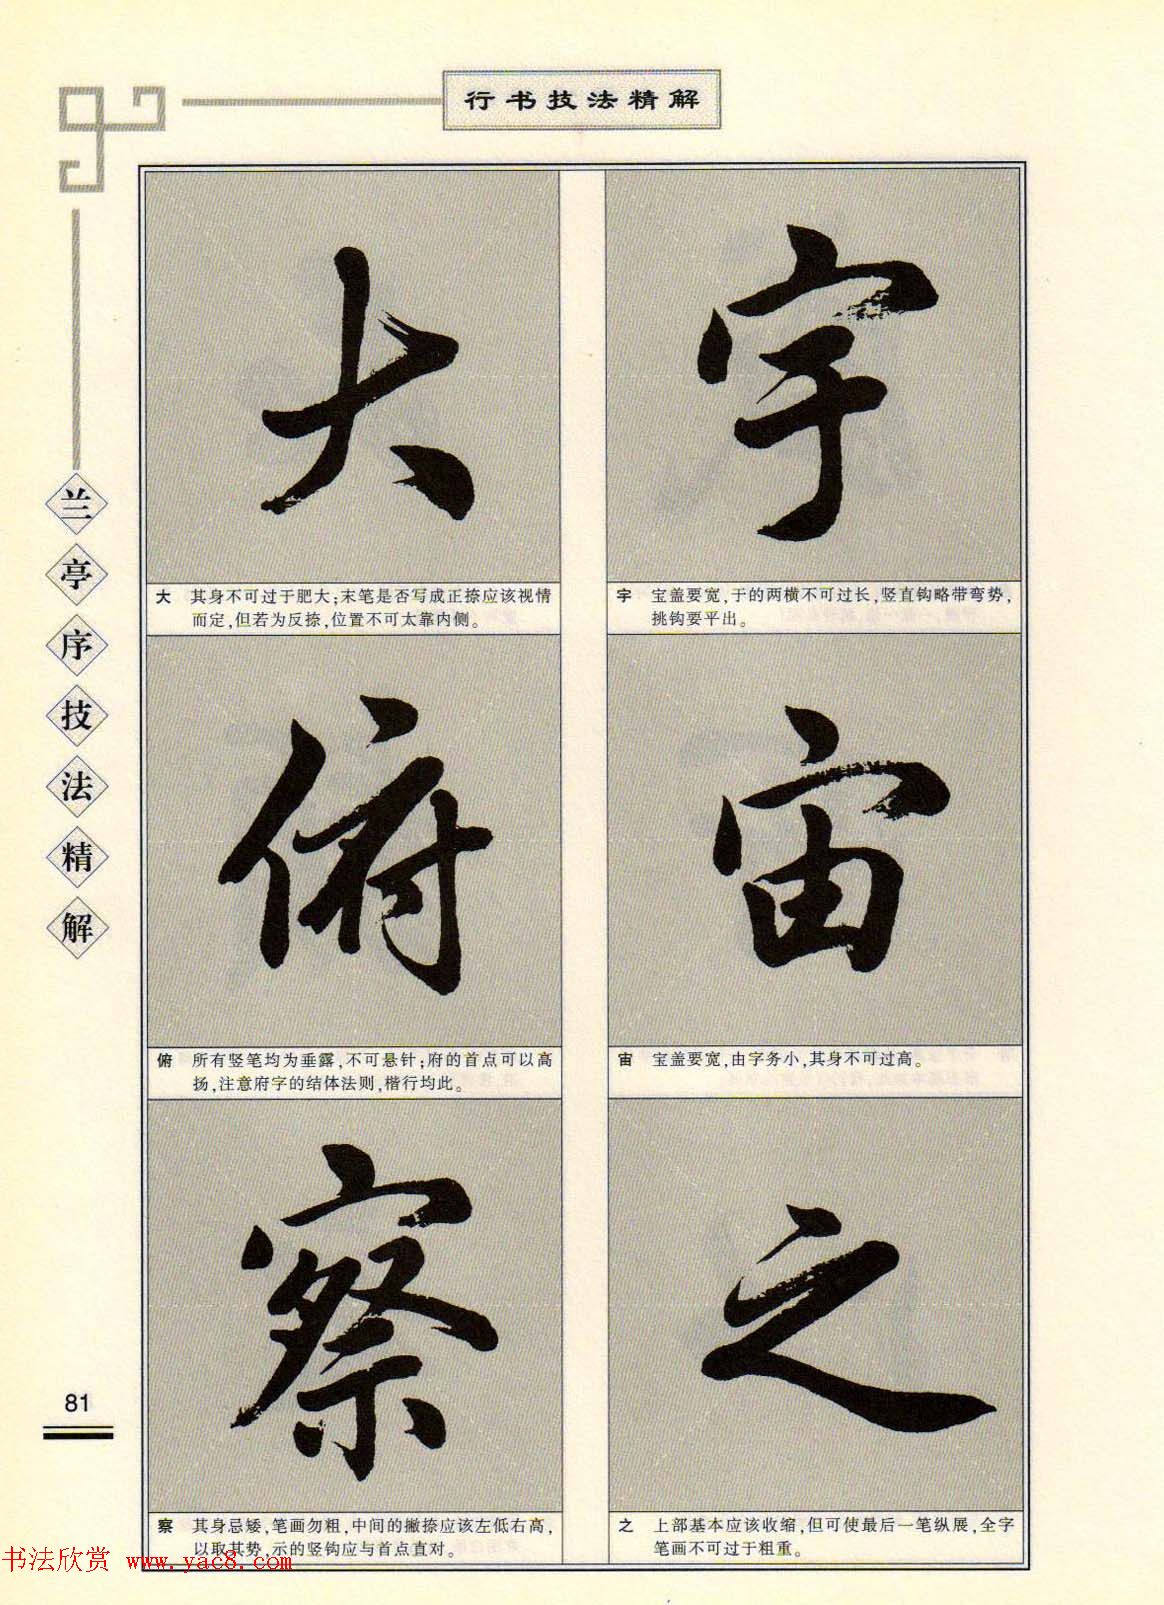 行书技法精解
兰亭序技法精解
宇
宇 宝盖要宽，于的两横不可过长，竖直钩略带弯势，
挑钩要平出。
宙
宙 宝盖要宽，由字务小，其身不可过高。
之
之 上部基本应该收缩，但可使最后一笔纵展，全字
笔画不可过于粗重。
大
大 其身不可过于肥大；末笔是否写成正捺应该视情
而定，但若为反捺，位置不可太靠内侧。
俯
俯 所有竖笔均为垂露，不可悬针；府的首点可以高
扬，注意府字的结体法则，楷行均此。
察
察 其身忌矮，笔画勿粗，中间的撇捺应该左低右高，
以取其势，示的竖钩应与首点直对。
81
书法欣赏 www.yac8.com